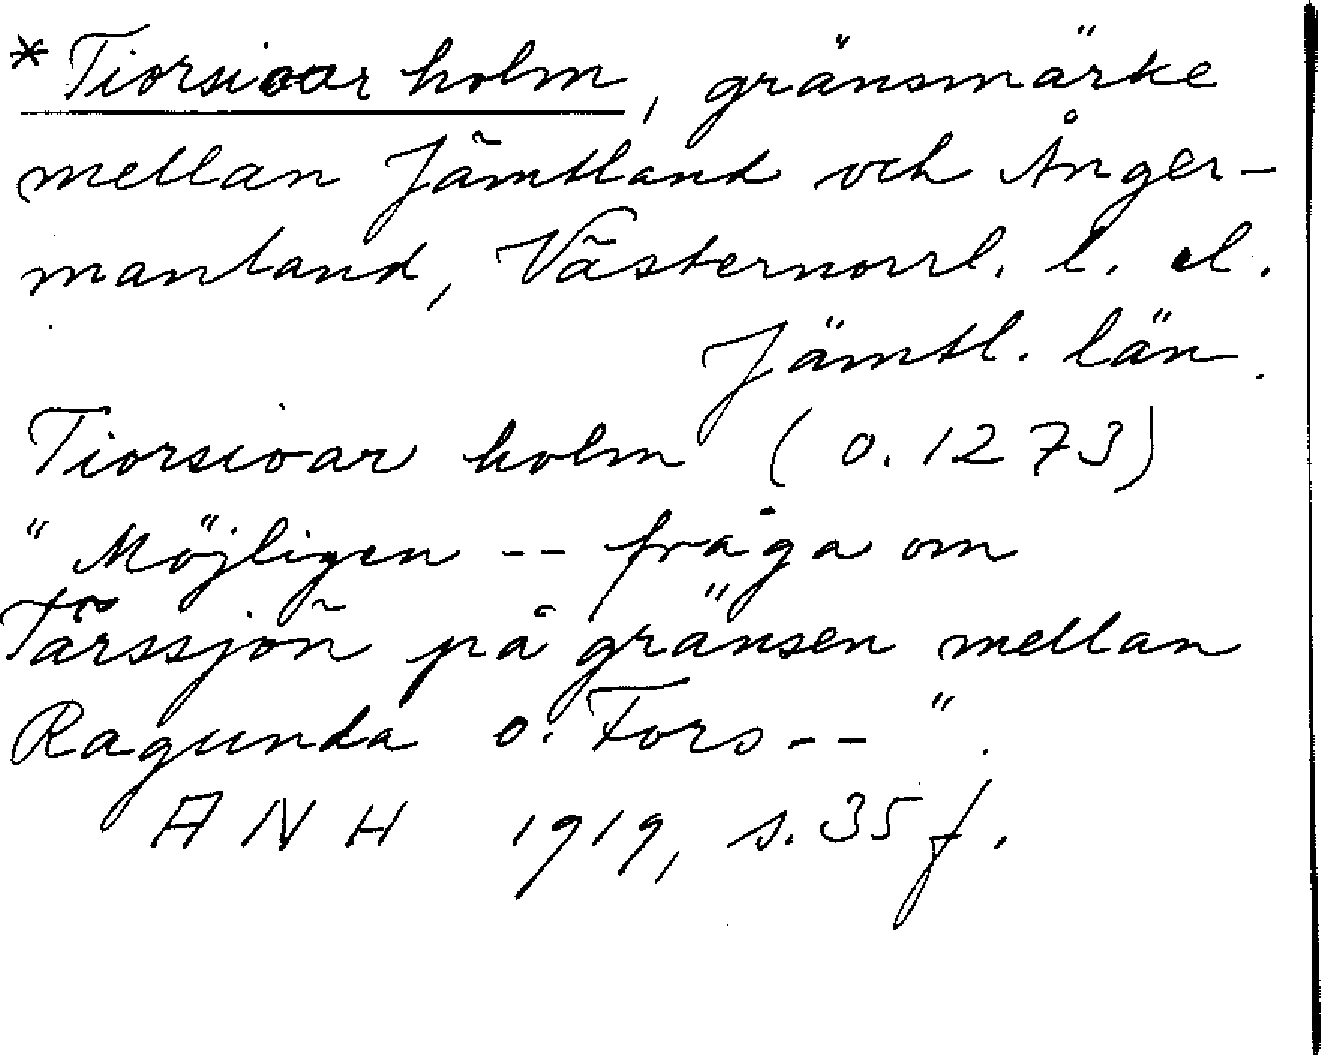 * Tiorsioar holm, gränsmärke
mellan Jämtland och Ånger-
manland, Västernorrl. l. el.
Jämtl. län.
Tiorsioar holm (o. 1273)
"Möjligen -- fråga om
Tärssjön på gränsen mellan
Ragunda o. Fors -- ".
ANH 1919, s. 35 f.